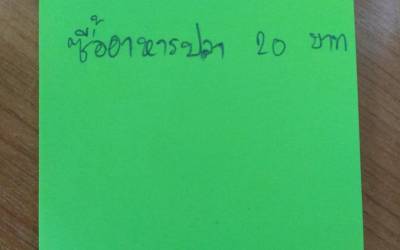 ซื้ออาหารปลา 20 บาท